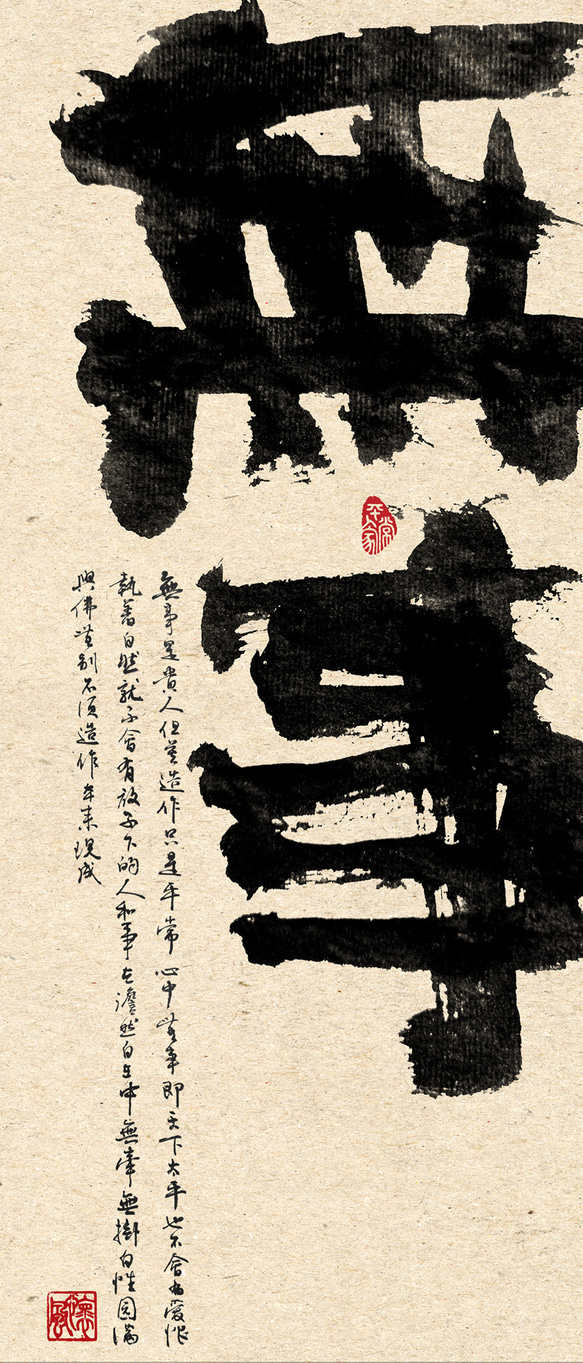 無事
平常家
無事是貴人但莫造作只是平常心中無事即天下太平也不會為愛
執著自然就不會有放不下的人和事在澹然自在中無牽無掛自性圓滿
與佛無別不須造作本来現成
懷風